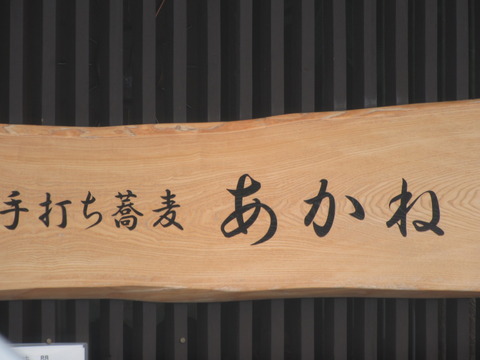 手打ち蕎麦 あかね